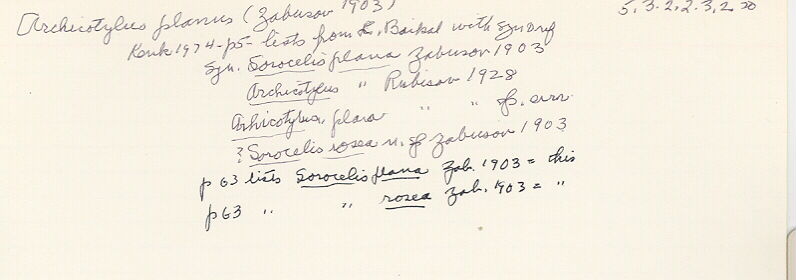 [Archicotylus planus (Zabusov 1903)
5.3.2.2.3.2.20
Kenk 1974-p5- lists from L. Baikal with Syn. Orig
Syn. Sorocelis plana Zabusov 1903
Archicotylus " Rubisov 1928
Arhicotylus, plana " " sp. error.
? Sorocelis rosea n. sp Zabusov 1903
p 63 lists Sorocelis plana Zab. 1903 = this
p 63 " " rosea Zab. 1903 = "